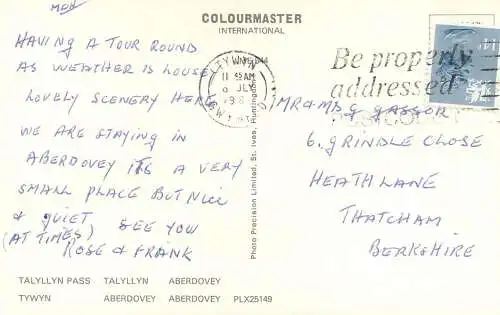 MON
COLOURMASTER
INTERNATIONAL
HAVING A TOUR ROUND
AS WEATHER IS LOUSEY
LOVELY SCENERY HERE
WE ARE STAYING IN
ABERDOVEY IT'S A VERY
SMALL PLACE BUT NICE
& QUIET SEE YOU
(AT TIMES) ROSE & FRANK
TALYLLYN PASS TALYLLYN ABERDOVEY
TYWYN ABERDOVEY ABERDOVEY PLX25149
Photo Precision Limited, St. Ives, Huntingdon
TYWYN
AM
JLY
Be properly
addressed
MR & MRS G
6. GRINDLE CLOSE
HEATH LANE
THATCHAM
BERKSHIRE